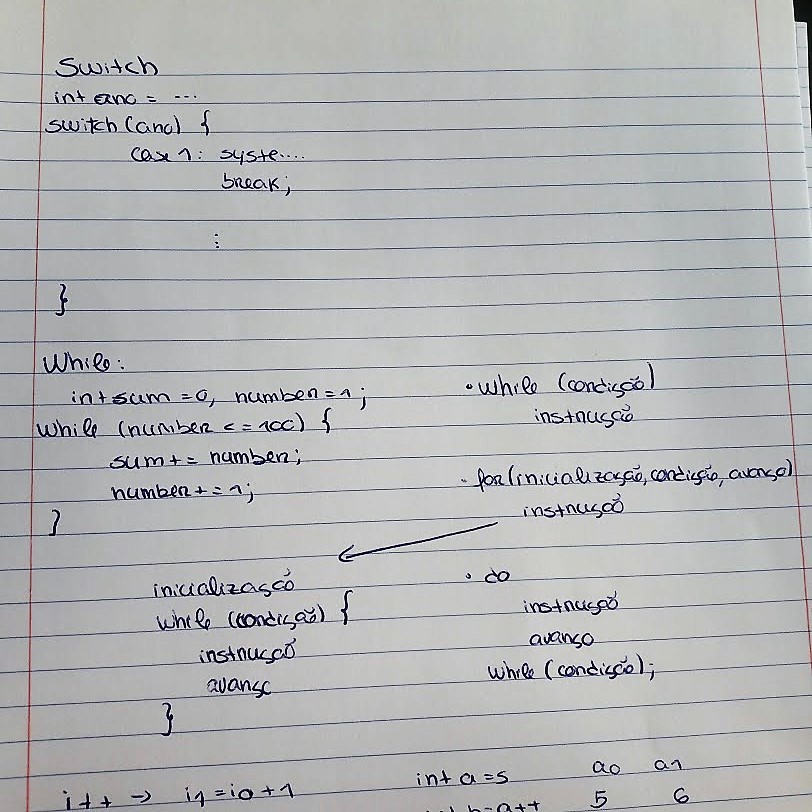 Switch
int ano = ...
switch (ano) {
case 1: syste....
break;
⋮
}
While:
int sum = 0, number = 1;
while (number <= 100) {
sum += number;
number += 1;
}
• while (condição)
instrução
• for (inicialização, condição, avanço)
instrução
inicialização
while (condição) {
instrução
avanço
}
• do
instrução
avanço
while (condição);
i++ → i1 = i0 + 1
int a = 5 a0 a1
int b = a++ 5 6